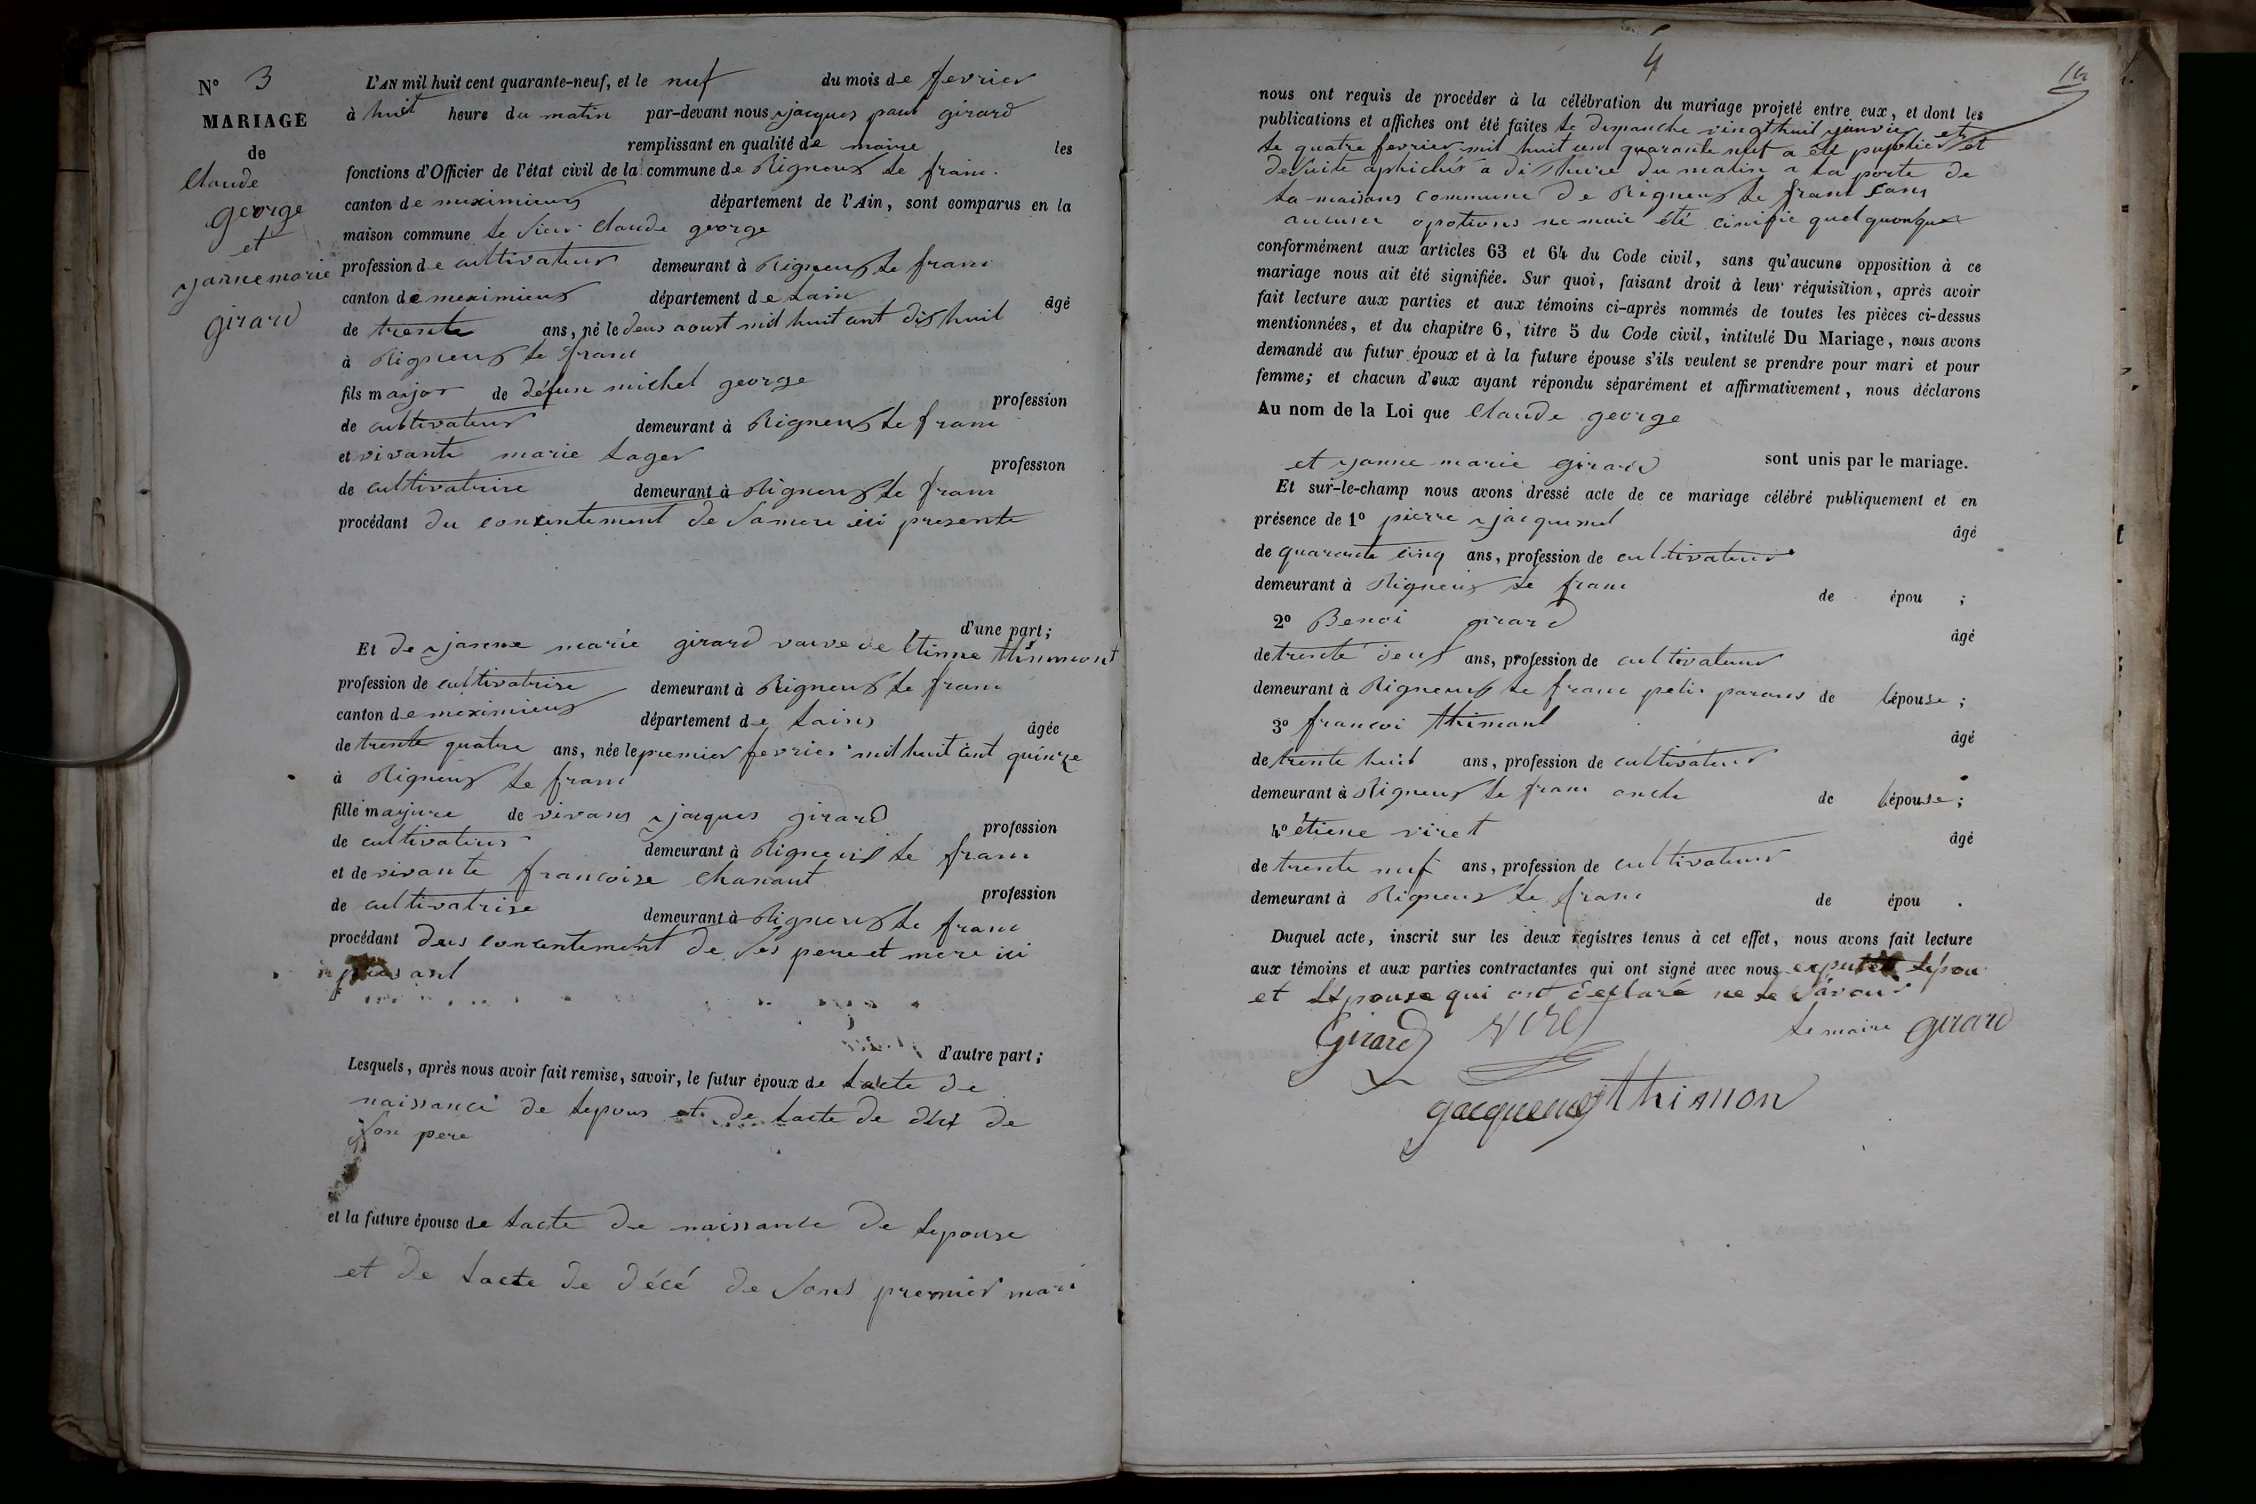 N° 3
MARIAGE
de
Claude
george
et
jannemarie
girard
L'AN mil huit cent quarante-neuf, et le nuf du mois de fevrier
à huit heure du matin par-devant nous jacques paul girard
remplissant en qualité de maire les
fonctions d'Officier de l'état civil de la commune de Rigneux le franc.
canton de meximieux département de l'Ain, sont comparus en la
maison commune le sieur Claude george
profession de cultivateur demeurant à Rigneux le franc
canton de meximieux département de lain
âgé
de trente ans, né le deux aoust mil huit cent dix huit
à Rigneux le franc
fils major de défun michel george
profession
de cultivateur demeurant à Rigneux le franc
et vivante marie lager
profession
de cultivatrice demeurant à Rigneux le franc
procédant du concentement de sa mere ici presente
d'une part;
Et de janne marie girard vauve de Etinne thimmont
profession de cultivatrise demeurant à Rigneux le franc
canton de meximieux département de lains
âgée
de trente quatre ans, née le premier fevrier mil huit cent quinze
à Rigneux le franc
fille majure de vivans jacques girard
profession
de cultivateur demeurant à Rigneux le franc
et de vivante francoise chanaut
profession
de cultivatrise demeurant à Rigneux le franc
procédant dus concentement de ses pere et mere ici
presant
d'autre part;
Lesquels, après nous avoir fait remise, savoir, le futur époux de lacte de
naissance de lepoux et de lacte de de
son pere
et la future épouse de lacte de naissance de lepouse
et de lacte de décé de sons premier mari
4
nous ont requis de procéder à la célébration du mariage projeté entre eux, et dont les
publications et affiches ont été faites le dimanche vingt huit janvier et
le quatre fevrier mil huit cent quarante nuf a été puplier et
de suite aphichér a dix huire du matin a la porte de
la maisons commune de Rigneux le franc sans
aucune opotions ne maie été cinifie quelquonque
conformément aux articles 63 et 64 du Code civil, sans qu'aucune opposition à ce
mariage nous ait été signifiée. Sur quoi, faisant droit à leur réquisition, après avoir
fait lecture aux parties et aux témoins ci-après nommés de toutes les pièces ci-dessus
mentionnées, et du chapitre 6, titre 5 du Code civil, intitulé Du Mariage, nous avons
demandé au futur époux et à la future épouse s'ils veulent se prendre pour mari et pour
femme; et chacun d'eux ayant répondu séparément et affirmativement, nous déclarons
Au nom de la Loi que Claude george
et janne marie girard sont unis par le mariage.
Et sur-le-champ nous avons dressé acte de ce mariage célébré publiquement et en
présence de 1° pierre jacquemet
âgé
de quarante cinq ans, profession de cultivateur
demeurant à Rigneux le franc
de épou ;
2° Benoi girard
âgé
de trente deux ans, profession de cultivateur
demeurant à Rigneux le franc petis parans de lépouse ;
3° francoi thimont
âgé
de trente huit ans, profession de cultivateur
demeurant à Rigneux le franc oncle de lépouse ;
4° étiene viret
âgé
de trente nuf ans, profession de cultivateur
demeurant à Rigneux le franc de épou .
Duquel acte, inscrit sur les deux registres tenus à cet effet, nous avons fait lecture
aux témoins et aux parties contractantes qui ont signé avec nous lépou
et lépouse qui ont déclaré ne le savoir
Girard viret le maire girard
jacquemet thimon